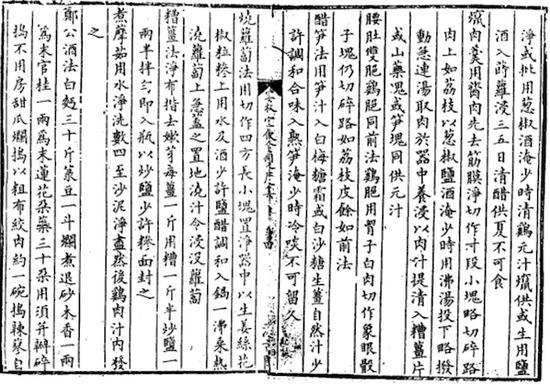 淨或批用葱椒酒淹少時清鷄元汁爊供或生用鹽
酒入蒔蘿浸三五日清醋供夏不可食
爊肉羹用膂肉先去筋膜淨切作寸段小塊略切碎路
肉上如荔枝以葱椒鹽酒淹少時用沸湯投下略撥
動急連湯取肉於器中養浸以肉汁提清入糟薑片
或山藥塊或笋塊同供元汁
腰肚雙脆鷄脆同前法鷄脆用胷子白肉切作象眼骰
子塊仍切碎路如荔枝皮餘如前法
醋笋法用笋汁入白梅糖霜或白沙糖生薑自然汁少
許調和合味入熟笋淹少時冷啖不可留久
燒蘿蔔法用切作四方長小塊置淨器中以生姜絲花
椒粒糝上用水及酒少許鹽醋調和入鍋一沸乘熱
澆蘿蔔上急蓋之置地澆汁令浸沒蘿蔔
糟薑法淨布揩去嫩芽每薑一斤用糟一斤半炒鹽一
兩半拌勻即入瓶以炒鹽少許糝面封之
煮蘑菇用水淨洗數四至沙泥淨盡然後鷄肉汁內發
之
鄭公酒法白麪三十斤菉豆一斗爛煮退砂木香一兩
為末官桂一兩為末蓮花朵蘂三十朵用須并瓣碎
搗不用房甜瓜爛搗以粗布絞肉約一碗搗辣寥自